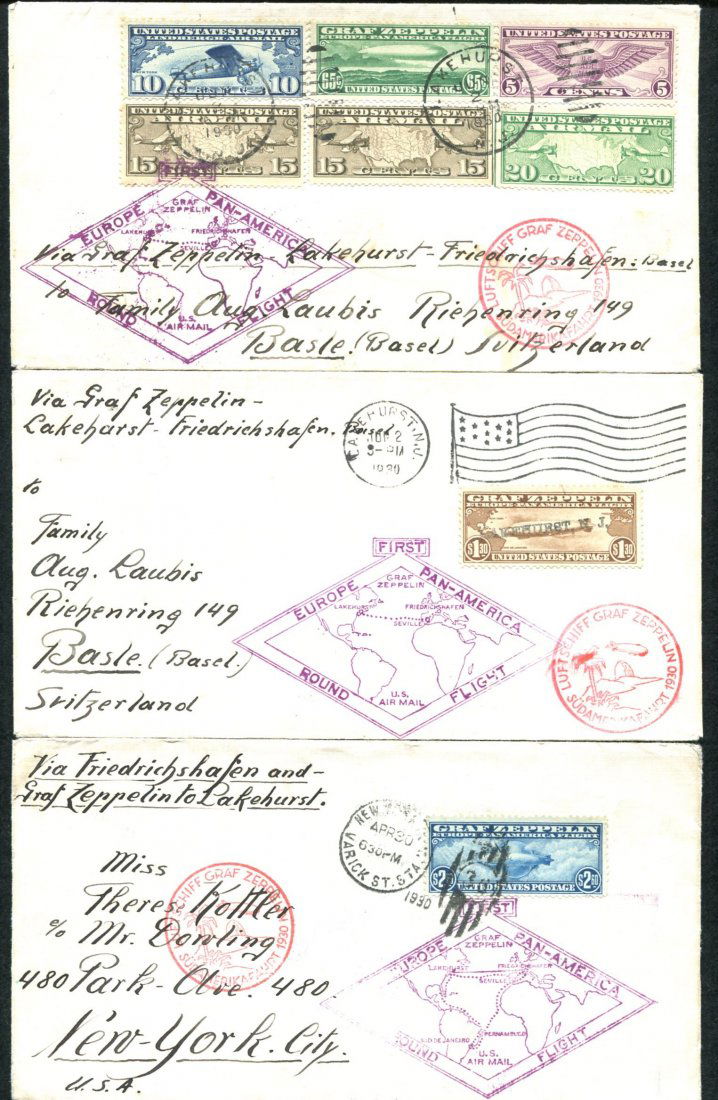 UNITED STATES POSTAGE
LINDBERGH-AIR MAIL
10 10
GRAF ZEPPELIN
EUROPE-PAN-AMERICA FLIGHT
65¢ 65¢
UNITED STATES POSTAGE
UNITED STATES POSTAGE
AIR MAIL
5 CENTS 5
UNITED STATES POSTAGE
AIR MAIL
15 CENTS 15
UNITED STATES POSTAGE
AIR MAIL
15 CENTS 15
UNITED STATES POSTAGE
AIR MAIL
20 CENTS 20
1930
FIRST
EUROPE PAN-AMERICA
GRAF ZEPPELIN
LAKEHURST FRIEDRICHSHAFEN
SEVILLE
U.S. AIR MAIL
ROUND FLIGHT
LUFTSCHIFF GRAF ZEPPELIN
SÜDAMERIKAFAHRT 1930
Via Graf Zeppelin - Lakehurst - Friedrichshafen. Basel
to Family Aug. Laubis Riehenring 149
Basle. (Basel) Switzerland
Via Graf Zeppelin -
Lakehurst - Friedrichshafen. Basel
LAKEHURST, N.J.
JUN 2
3-PM
1930
GRAF ZEPPELIN
EUROPE-PAN-AMERICA FLIGHT
LAKEHURST N. J.
$1.30 $1.30
UNITED STATES POSTAGE
to
Family
Aug. Laubis
Riehenring 149
Basle. (Basel.)
Switzerland
FIRST
EUROPE PAN-AMERICA
GRAF ZEPPELIN
LAKEHURST FRIEDRICHSHAFEN
SEVILLE
U.S. AIR MAIL
ROUND FLIGHT
LUFTSCHIFF GRAF ZEPPELIN
SÜDAMERIKAFAHRT 1930
Via Friedrichshafen and -
Graf Zeppelin to Lakehurst.
NEW YORK
APR 30
630PM
VARICK ST. STA.
1930
GRAF ZEPPELIN
EUROPE-PAN-AMERICA FLIGHT
$2.60 $2.60
UNITED STATES POSTAGE
Miss
Therese Kottler
c/o Mr. Dowling
480 Park-Ave. 480
New-York. City.
U.S.A.
LUFTSCHIFF GRAF ZEPPELIN
SÜDAMERIKAFAHRT 1930
FIRST
EUROPE PAN-AMERICA
GRAF ZEPPELIN
LAKEHURST FRIEDRICHSHAFEN
SEVILLE
PERNAMBUCO
RIO DE JANEIRO
U.S. AIR MAIL
ROUND FLIGHT